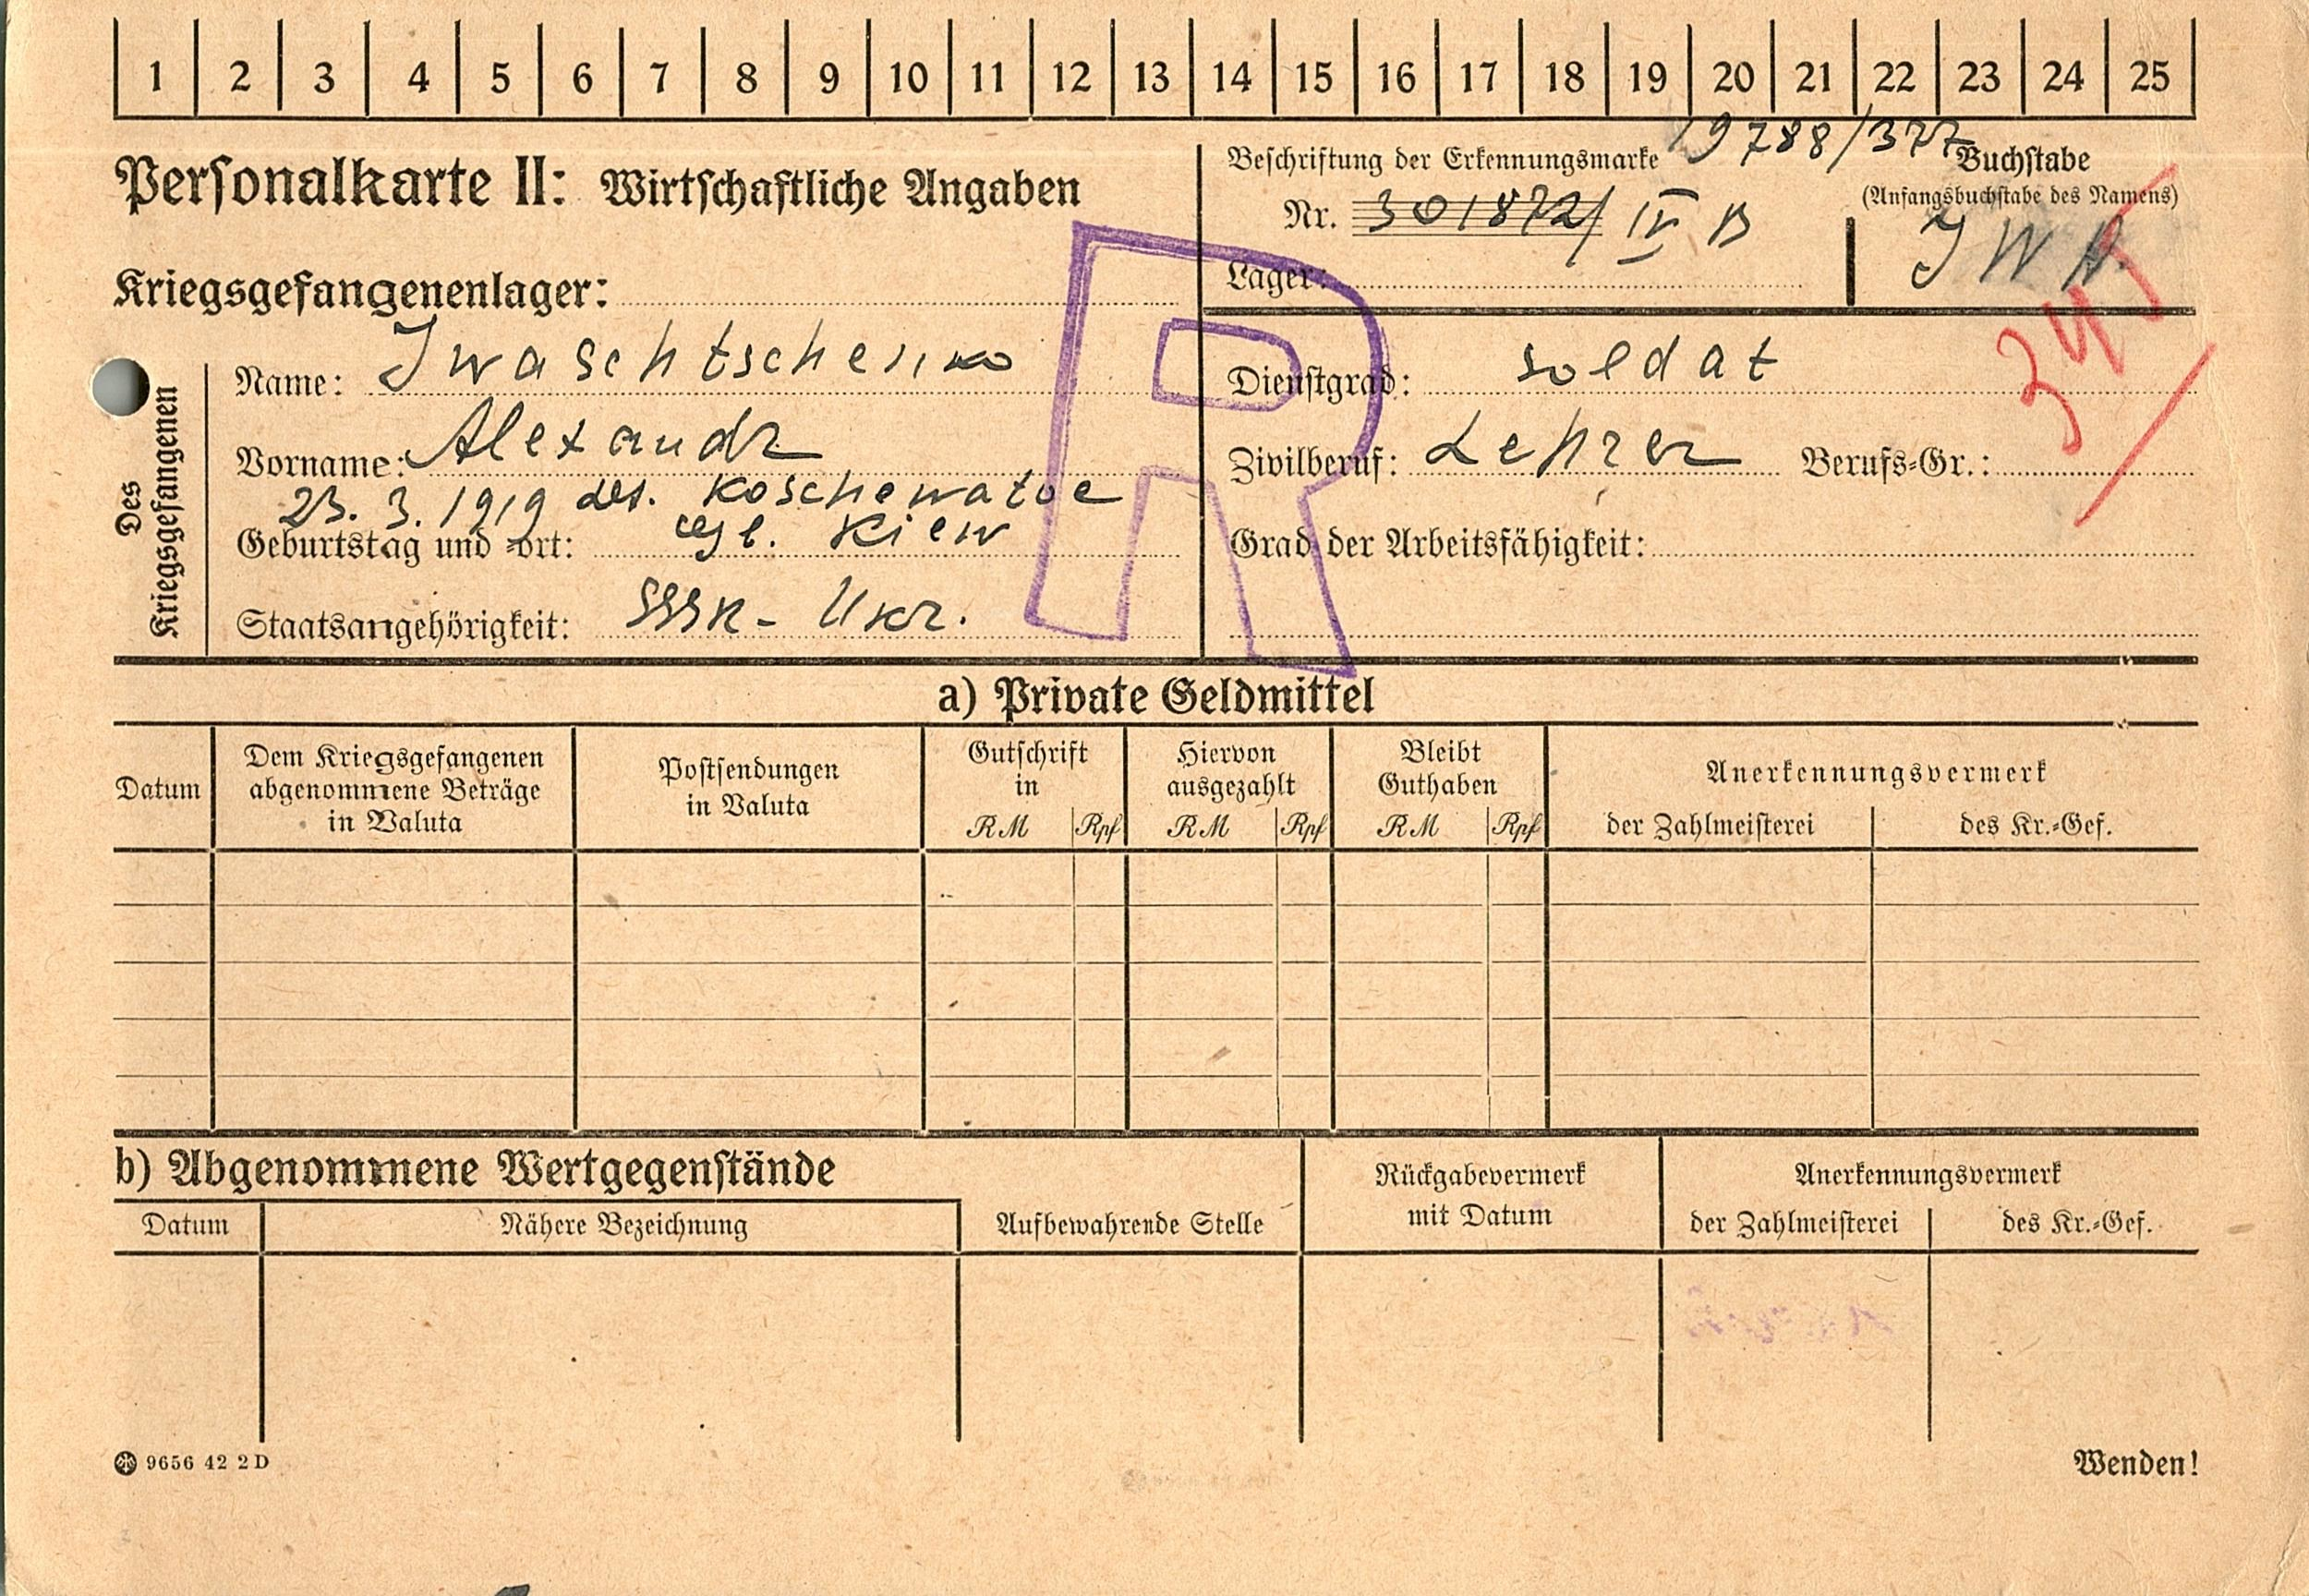 1 2 3 4 5 6 7 8 9 10 11 12 13 14 15 16 17 18 19 20 21 22 23 24 25
Personalkarte II: Wirtschaftliche Angaben
Kriegsgefangenenlager:
Des Kriegsgefangenen
Name: Iwaschtschenko
Vorname: Alexandr
23. 3. 1919 des. Koschewatoe
Geburtstag und =ort: Kiew
Staatsangehörigkeit: SSSR - Ukr.
19788/377
Beschriftung der Erkennungsmarke
Nr. 301872/ IV B
Lager:
Buchstabe
(Anfangsbuchstabe des Namens)
I W A.
345
Dienstgrad: Soldat
Zivilberuf: Lehrer Berufs=Gr.:
Grad der Arbeitsfähigkeit:
R
a) Private Geldmittel
Datum
Dem Kriegsgefangenen
abgenommene Beträge
in Valuta
Postsendungen
in Valuta
Gutschrift
in
RM Rpf
Hiervon
ausgezahlt
RM Rpf
Bleibt
Guthaben
RM Rpf
Anerkennungsvermerk
der Zahlmeisterei des Kr.=Gef.
b) Abgenommene Wertgegenstände
Datum Nähere Bezeichnung
Aufbewahrende Stelle
Rückgabevermerk
mit Datum
Anerkennungsvermerk
der Zahlmeisterei des Kr.=Gef.
9656 42 2 D
Wenden!